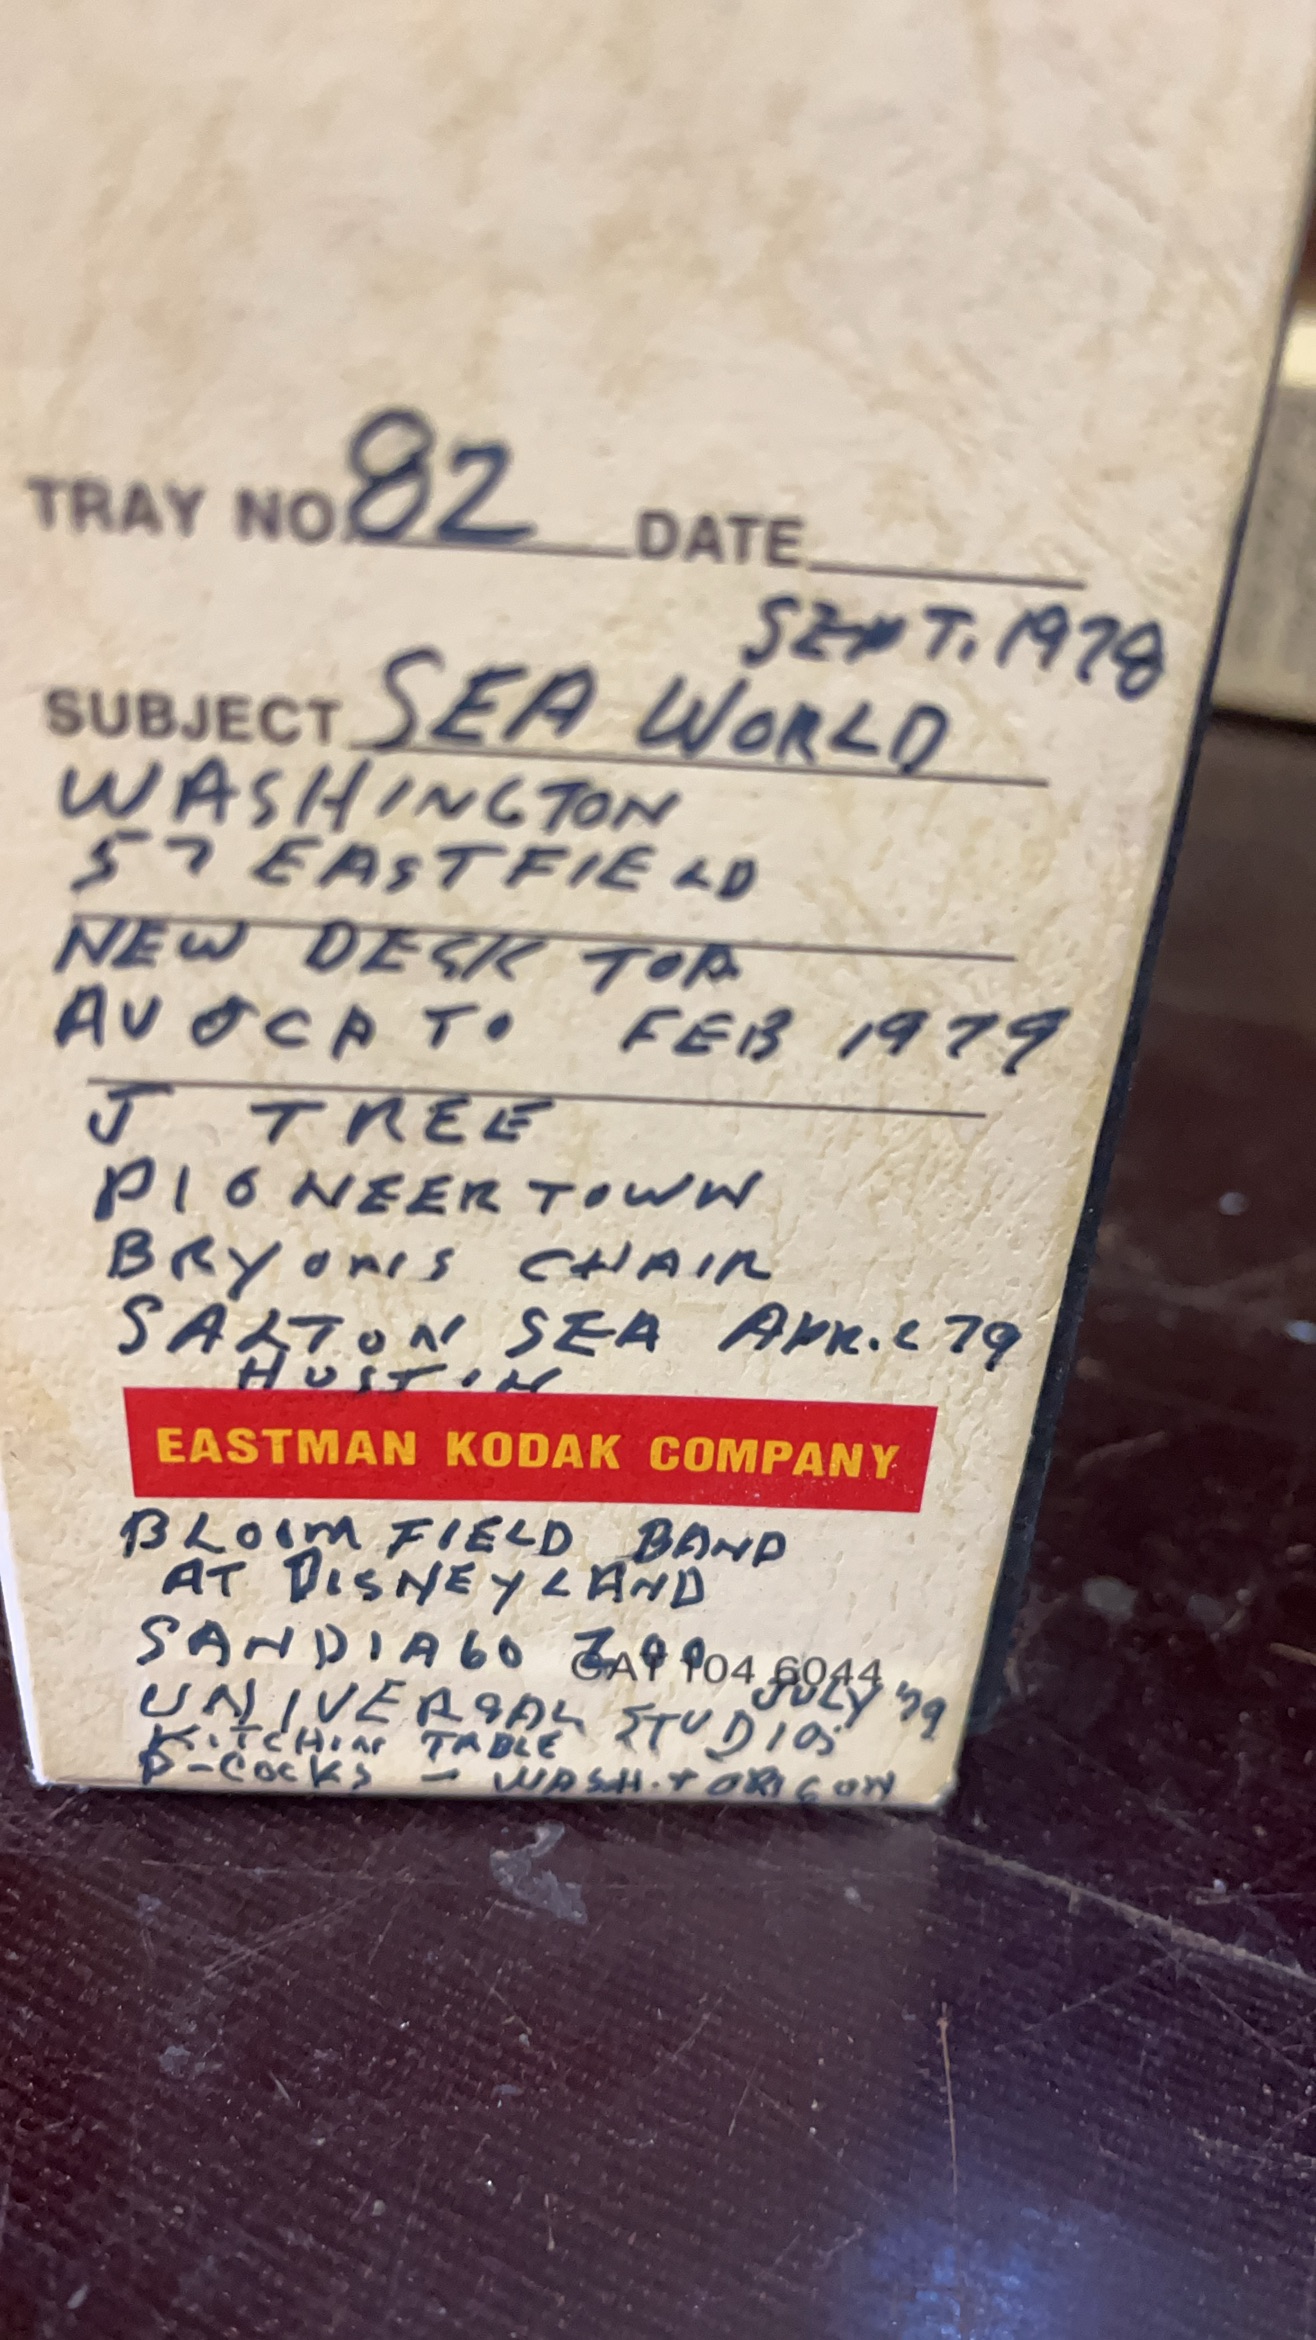 TRAY NO. 82 DATE
SEPT. 1978
SUBJECT SEA WORLD
WASHINGTON
57 EASTFIELD
NEW DESK TOP
AVOCATO FEB 1979
J TREE
PIONEERTOWN
CHAIR
SALTON SEA APR. 79
HUSTON
EASTMAN KODAK COMPANY
BLOOMFIELD BAND
AT DISNEYLAND
SANDIAGO ZOO
CAT 104 6044
JULY 79
UNIVERSAL STUDIOS
KITCHIN TABLE
P-COCKS - WASH. + ORIGON